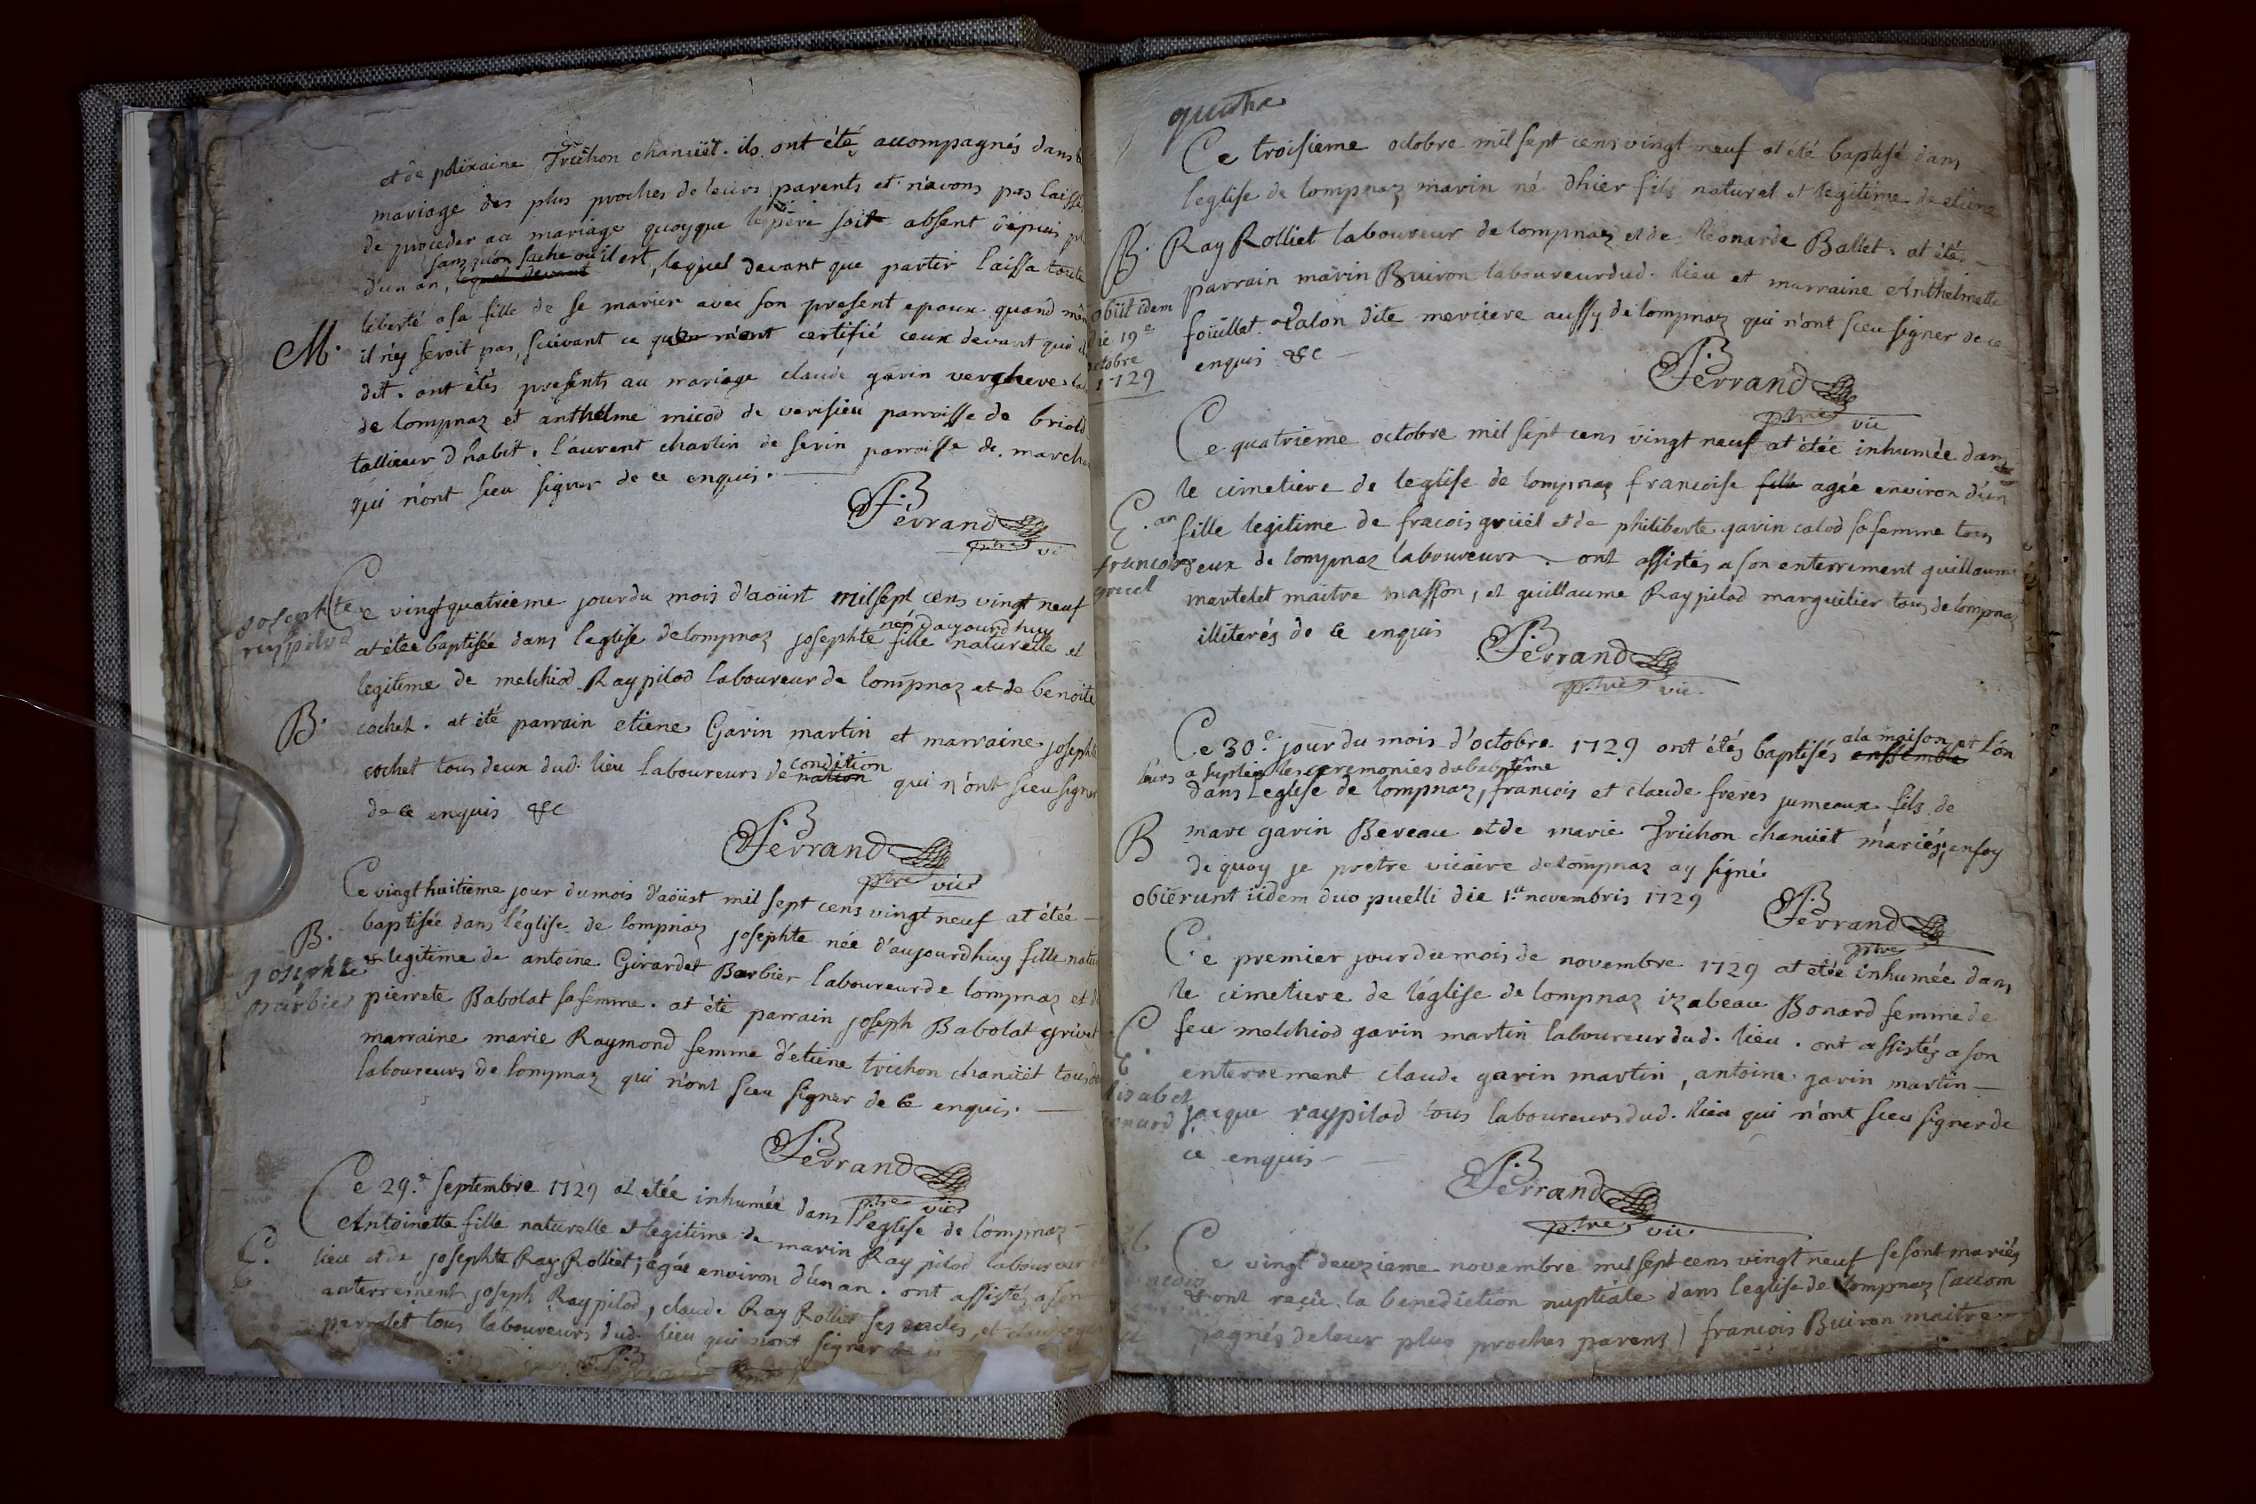 et de polixaine Trichon chanüet. ils ont été accompagnés dans
mariage des plus proches de leurs parents et n'avons pas laissé
de proceder au mariage quoyque le pere soit absent dépuis
sans qu'on sache ou il est
d'un an, lequel devant, lequel devant que partir laissa toute
M. liberté a sa fille de se marier avec son present epoux quand
il n'ey seroit pas, suivant ce que m'ont certifié ceux devant qui
dit. ont étés presents au mariage claude gavin verghere
de lompnaz et anthelme micod de verisieu parroisse de briord
tallieur d'habit, laurent charlin de serin parroisse de marcha
qui n'ont sceu signer de ce enquis.
Ferrand
ptre vi
josephte
raypilod
Ce vingtquatrieme jour du mois d'aoüst mil sept cens vingt neuf
née d'aujourd'huy
at étée baptisée dans l'eglise de lompnaz josephte fille naturelle et
legitime de melchiod Raypilod laboureur de lompnaz et de benoite
B. cochet. at été parrain etiene Gavin martin et marraine joseph
condition
cochet tous deux dud. lieu laboureurs de nation qui n'ont sceu signer
de ce enquis &c
Ferrand
ptre vic
Ce vingt huitieme jour du mois d'aoüst mil sept cens vingt neuf at étée
B. baptisée dans l'église de lompnaz josephte née d'aujourdhuy fille natu
josephte
barbier
& legitime de antoine Girardet Barbier laboureur de lompnaz et
pierrete Babolat sa femme. at été parrain joseph Babolat grivet
marraine marie Raymond femme d'etiene trichon chanüet tous
laboureurs de lompnaz qui n'ont sceu signer de ce enquis.
Ferrand
ptre vic
Ce 29.e septembre 1729 at étée inhumée dans l'eglise de lompnaz
Antoinette fille naturelle et legitime de marin Ray pilod laboureur
lieu et de josephte Ray Rolliet, agée environ d'un an. ont assistés a son
anterrement joseph Raypilod, claude Ray Rolliet ses oncles, et
perrolet tous laboureurs dud. lieu qui n'ont signer
quatre
Ce troisieme octobre mil sept cens vingt neuf at été baptisé dans
l'eglise de lompnaz marin né d'hier fils naturel et legitime de etiene
B. Ray Rolliet laboureur de lompnaz et de leonarde Ballet. at été
parrain marin Buiron laboureur dud. lieu et marraine Anthelmette
foüillet talon dite merciere aussy de lompnaz qui n'ont sceu signer de ce
enquis &c
obiit idem
die 19e
octobre
1729
Ferrand
ptre vic
Ce quatrieme octobre mil sept cens vingt neuf at étée inhumée dans
le cimetiere de l'eglise de lompnaz francoise fille agée environ d'un
E. an fille legitime de fracois grüel et de philiberte gavin calod sa femme tous
francoise
gruel
deux de lompnaz laboureurs. ont assistés a son enterrement guillaume
martelet maitre masson, et guillaume Raypilod marguilier tous de lompnaz
illiterés de ce enquis
Ferrand
ptre vic.
a la maison et l'on
Ce 30.e jour du mois d'octobre 1729 ont étés baptisés enssemble
leurs a supleé les ceremonies du babptême
dans l'eglise de lompnaz, francois et claude freres jumeaux fils de
B marc gavin Beveau et de marie Trichon chanüet mariés, en foy
de quoy je prêtre vicaire de lompnaz ay signé
obierunt iidem duo puelli die 1.a novembris 1729
Ferrand
ptre
Ce premier jour du mois de novembre 1729 at étée inhumée dans
le cimetiere de l'église de lompnaz izabeau Bonard femme de
feu melchiod gavin martin laboureur dud. lieu. ont assistés a son
E.
enterrement claude gavin martin, antoine gavin martin
jacque raypilod tous laboureurs dud. lieu qui n'ont sceu signer de
ce enquis
Ferrand
ptre vic.
Ce vingt deuziame novembre mil sept cens vingt neuf se sont mariés
& ont reçû la benediction nuptiale dans l'eglise de lompnaz (accom
pagnés de leur plus proches parens) françois Buiron maitre